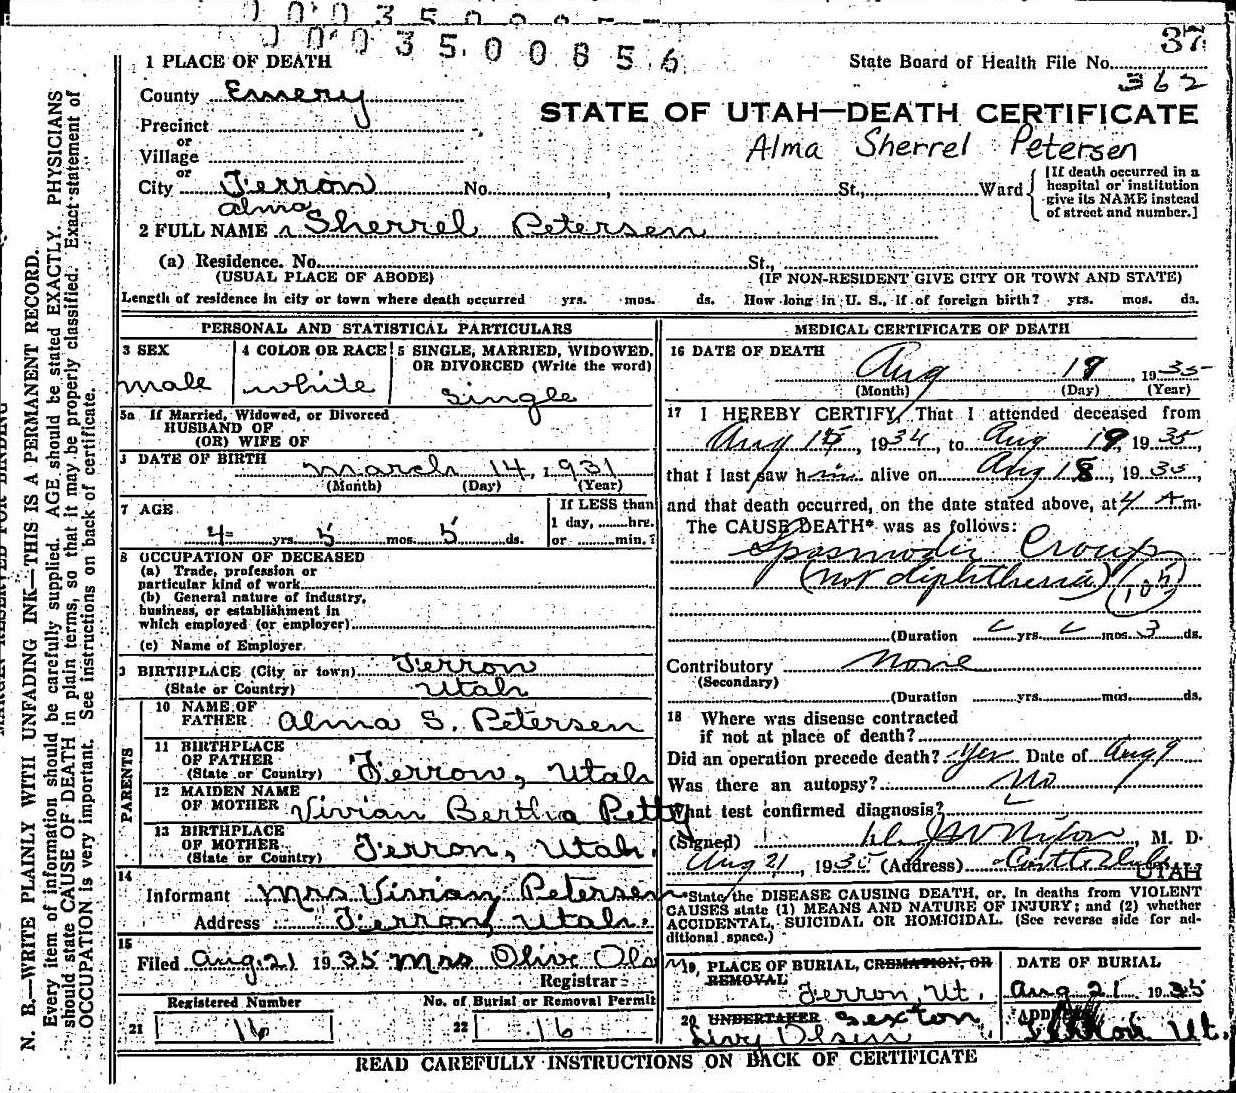 0003500856
37
1 PLACE OF DEATH
State Board of Health File No. 362
County Emery
STATE OF UTAH—DEATH CERTIFICATE
Precinct
or
Village
Alma Sherrel Petersen
or
City Ferron No. , St., Ward
[If death occurred in a hospital or institution give its NAME instead of street and number.]
alma
2 FULL NAME Sherrel Petersen
(a) Residence. No. St.,
(USUAL PLACE OF ABODE) (IF NON-RESIDENT GIVE CITY OR TOWN AND STATE)
Length of residence in city or town where death occurred yrs. mos. ds. How long in U. S., if of foreign birth? yrs. mos. ds.
PERSONAL AND STATISTICAL PARTICULARS
3 SEX
male
4 COLOR OR RACE
white
5 SINGLE, MARRIED, WIDOWED, OR DIVORCED (Write the word)
single
5a If Married, Widowed, or Divorced
HUSBAND OF
(OR) WIFE OF
DATE OF BIRTH March 14, 1931
(Month) (Day) (Year)
7 AGE
4 yrs. 5 mos. 5 ds.
If LESS than
1 day, hrs.
or min.?
8 OCCUPATION OF DECEASED
(a) Trade, profession or
particular kind of work
(b) General nature of industry,
business, or establishment in
which employed (or employer)
(c) Name of Employer
BIRTHPLACE (City or town) Ferron
(State or Country) Utah
PARENTS
10 NAME OF FATHER Alma S. Petersen
11 BIRTHPLACE OF FATHER (State or Country) Ferron, Utah
12 MAIDEN NAME OF MOTHER Vivian Bertha Petty
13 BIRTHPLACE OF MOTHER (State or Country) Ferron, Utah.
14
Informant Mrs Vivian Petersen
Address Ferron, Utah.
15
Filed Aug. 21 1935 Mrs Olive Ols
Registrar
Registered Number
No. of Burial or Removal Permit
21 16
22 16
MEDICAL CERTIFICATE OF DEATH
16 DATE OF DEATH
Aug 19 1935
(Month) (Day) (Year)
17 I HEREBY CERTIFY, That I attended deceased from
Aug 15, 1934, to Aug 19, 1935,
that I last saw him alive on Aug 18, 1935
and that death occurred, on the date stated above, at 4 A m.
The CAUSE DEATH* was as follows:
Spasmodic Croup
(not diphtheria) (105)
(Duration yrs. mos. 3 ds.
Contributory None
(Secondary)
(Duration yrs. mos. ds.
18 Where was disease contracted
if not at place of death?
Did an operation precede death? Yes Date of Aug 9
Was there an autopsy? No
What test confirmed diagnosis?
(Signed) Nixon, M. D.
Aug 21, 1935 (Address) Castle Dale
UTAH
*State the DISEASE CAUSING DEATH, or, in deaths from VIOLENT
CAUSES state (1) MEANS AND NATURE OF INJURY; and (2) whether
ACCIDENTAL, SUICIDAL OR HOMICIDAL. (See reverse side for ad-
ditional space.)
19 PLACE OF BURIAL, CREMATION, OR REMOVAL
Ferron, Ut.
DATE OF BURIAL
Aug 21 1935
20 UNDERTAKER Sexton
Levy Olsen
ADDRESS
Ferron Ut.
READ CAREFULLY INSTRUCTIONS ON BACK OF CERTIFICATE
N. B.—WRITE PLAINLY WITH UNFADING INK—THIS IS A PERMANENT RECORD.
Every item of information should be carefully supplied. AGE should be stated EXACTLY. PHYSICIANS
should state CAUSE OF DEATH in plain terms, so that it may be properly classified. Exact statement of
OCCUPATION is very important. See instructions on back of certificate.